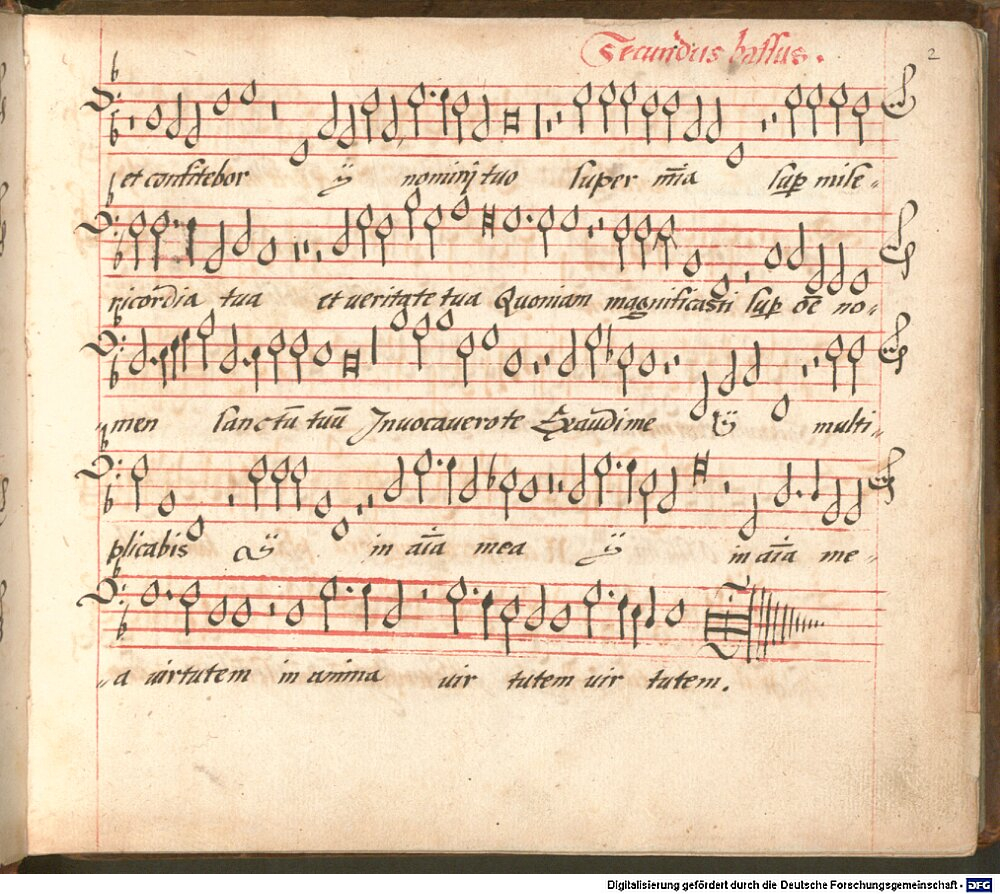 Secundus bassus.
2
et confitebor ij nominj tuo super mīa sup mise-
ricordia tua et veritate tua Quoniam magnificasti sup oē no-
men sanctū tuū Invocavero te Exaudi me ij multi-
plicabis ij in aīa mea ij in aīa me-
a virtutem in anima vir tutem vir tutem.
Digitalisierung gefördert durch die Deutsche Forschungsgemeinschaft - DFG